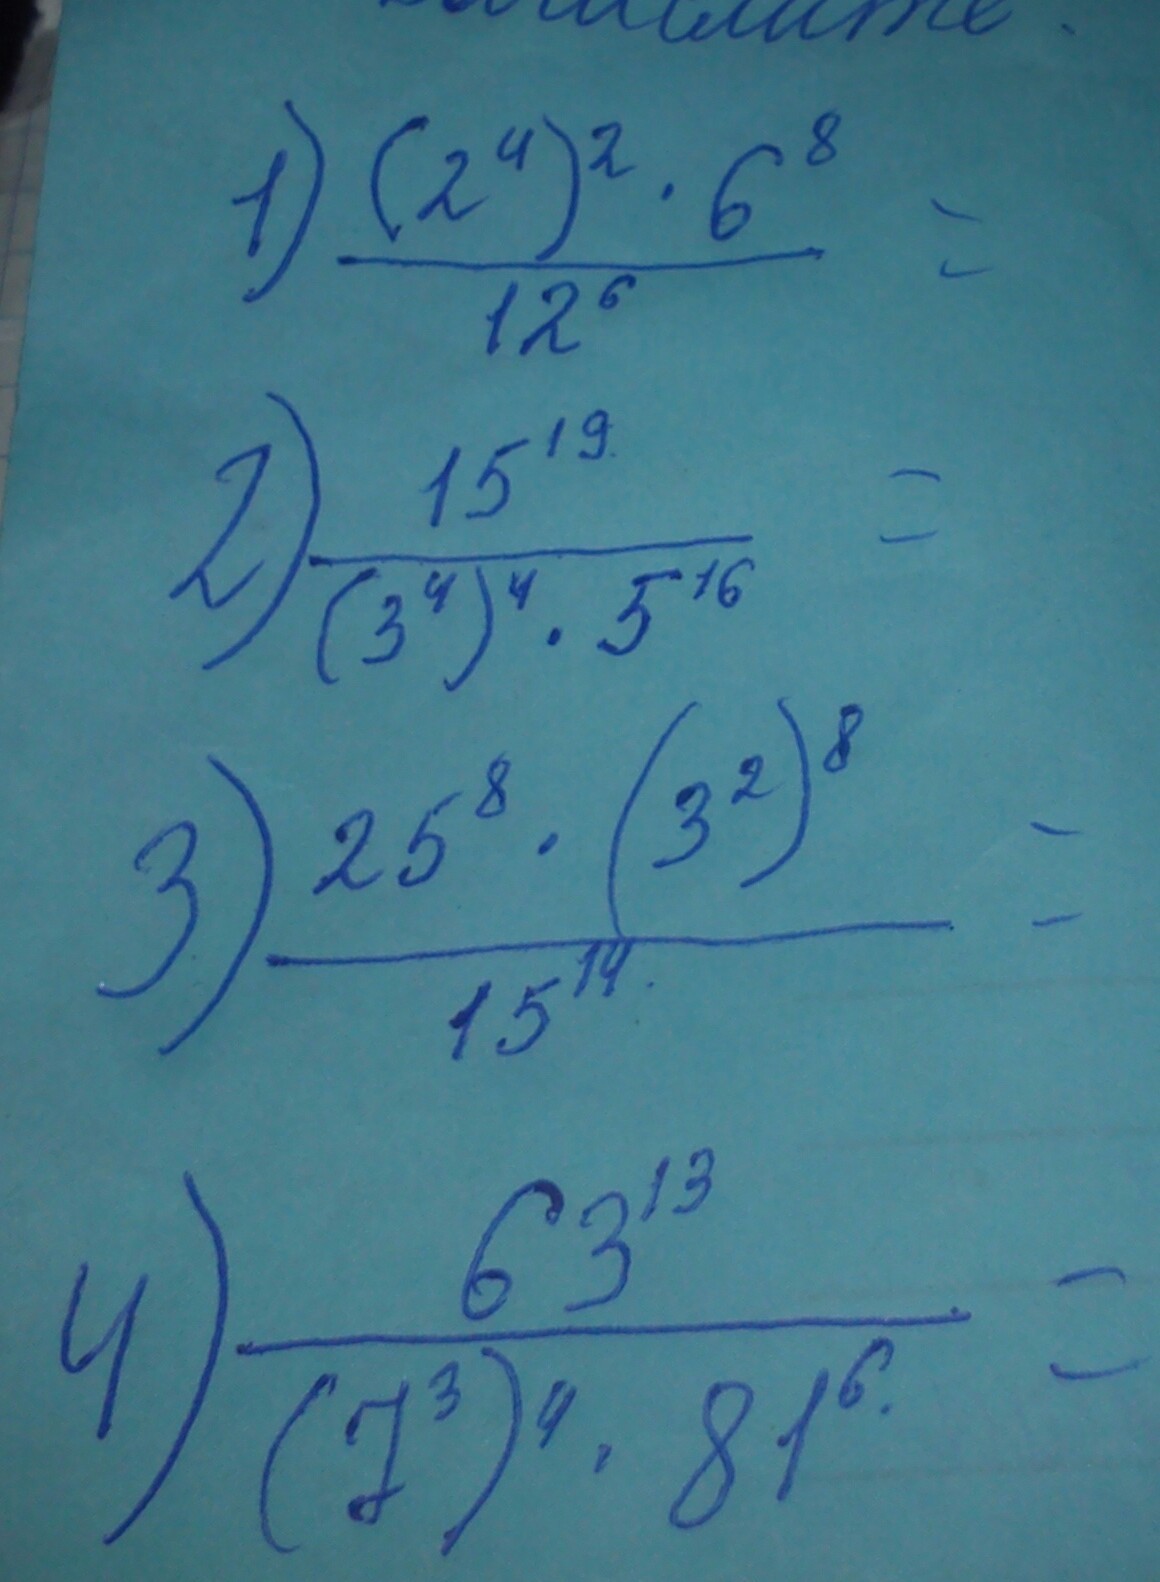 Вычислите.
1) \frac{(2^4)^2 \cdot 6^8}{12^6} =
2) \frac{15^{19}}{(3^4)^4 \cdot 5^{16}} =
3) \frac{25^8 \cdot (3^2)^8}{15^{14}} =
4) \frac{63^{13}}{(7^3)^4 \cdot 81^6} =